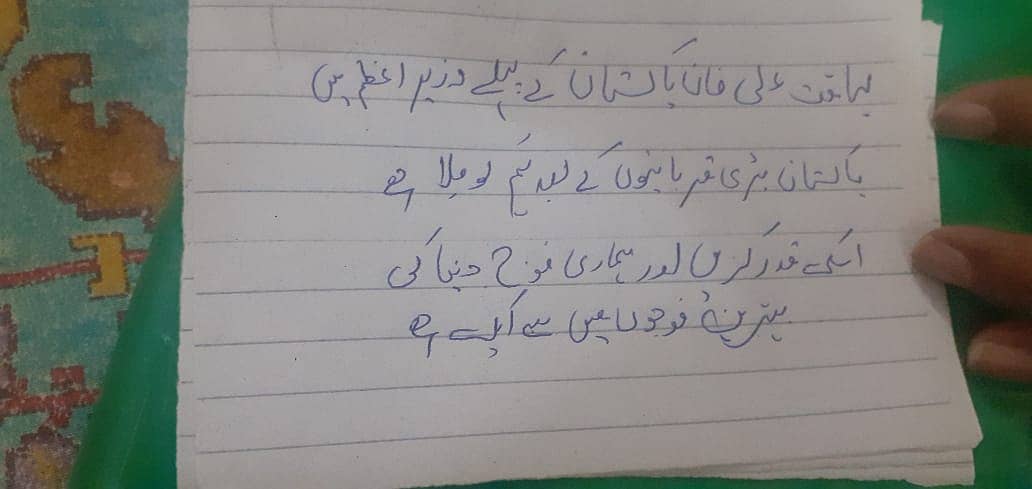 لیاقت علی خان پاکستان کے پہلے وزیر اعظم ہیں
پاکستان بڑی قربانیوں کے بعد ہم کو ملا ہے
اسکی قدر کریں اور ہماری فوج دنیا کی
بہترین فوجوں میں سے ایک ہے